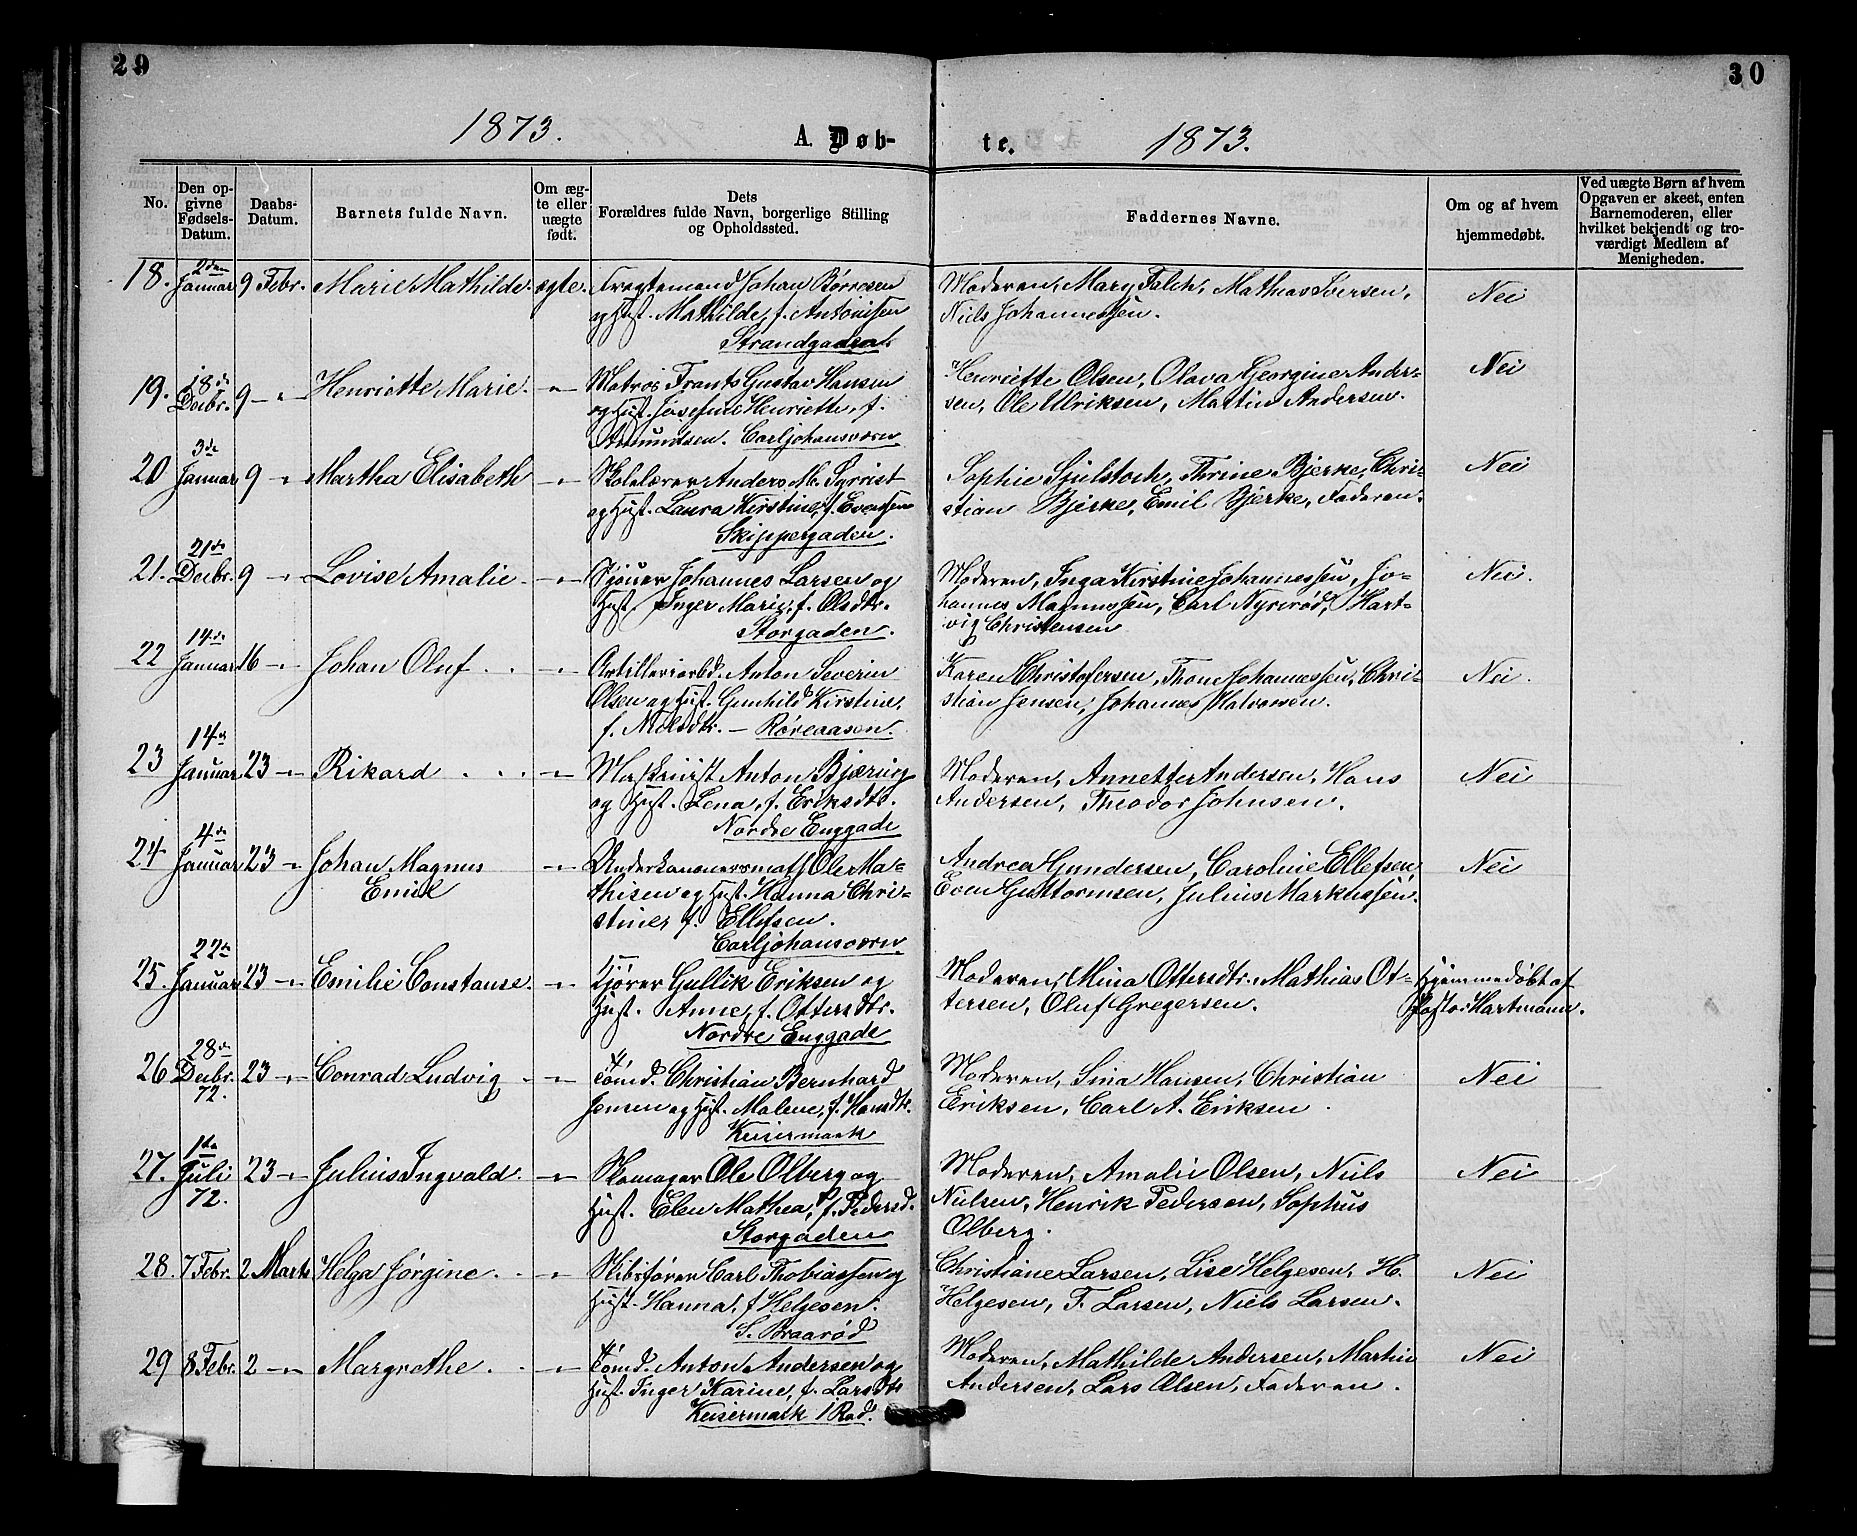 29
30
1873.
A. Døb-
te.
1873.
No.
Den op-
givne
Fødsels-
Datum.
Daabs-
Datum.
Barnets fulde Navn.
Om æg-
te eller
uægte
født.
Dets
Forældres fulde Navn, borgerlige Stilling
og Opholdssted.
Faddernes Navne.
Om og af hvem
hjemmedøbt.
Ved uægte Børn af hvem
Opgaven er skeet, enten
Barnemoderen, eller
hvilket bekjendt og tro-
værdigt Medlem af
Menigheden.
18. 2den Januar 9 Febr. Marie Mathilde ægte. Fragtemand Johan Børresen
og Hust. Mathilde, f. Antonisen
Strandgaden.
Moderen, Mary Falch, Mathias Iversen,
Niels Johannessen.
Nei
19. 18de Decbr. 9 - " Henriette Marie. - " - Matros Frants Gustav Hansen
og Hust. Josefine Henriette, f.
Amundsen. Carljohansværn
Henriette Olsen, Olava Georgine Ander-
sen, Ole Ulriksen, Martin Andersen.
Nei
20 3de Januar 9 - " Martha Elisabeth - " - Skolelærer Anders M.
og Hust. Laura Kirstine, f. Evensen
Skippergaden.
Sophie Sjulstock, Thrine Bjerke, Chri-
stian Bjerke, Emil Bjerke, Faderen.
Nei
21. 21de Decbr. 9 - " Lovise Amalie. - " - Sjouer Johannes Larsen og
Hust. Inger Marie, f. Olsdtr.
Storgaden.
Moderen, Inga Kirstine Johannessen, Jo-
hannes Magnussen, Carl Nyrerød, Hart-
vig Christensen
Nei.
22 14de Januar 16 - " Johan Oluf . . - " - Artilleriarbd. Anton Severin
Olsen og Hust. Gunhild Kirstine,
f. Nilsdtr. - Røreaasen.
Karen Christofersen, Thone Johannessen, Chri-
stian Jensen, Johannes Halvorsen.
Nei.
23 14de Januar 23 - " Rikard . . . - " - Maskinist Anton Bjering
og Hust. Lena, f. Eriksdtr.
Nordre Enggade
Moderen, Annette Andersen, Hans
Andersen, Theodor Johnsen.
Nei
24 4de Januar 23 - " Johan Magnus
Emil - " - Underkanonersmat Ole Ma-
thisen og Hust. Hanna Chri-
stine, f. Ellefsen.
Carljohansværn
Andrea Gundersen, Caroline Ellefsen,
Even Guttormsen, Julius Markussen.
Nei
25. 22de Januar 23 - " Emilie Constanse. - " - Kjører Gullik Eriksen og
Hust. Anne, f. Ottersdtr.
Nordre Enggade
Moderen, Mina Ottersdtr. Mathias Ot-
tersen, Oluf Gregersen.
Hjemmedøbt af
Pastor Hartmann.
26 28de Decbr. 72. 23 - " Conrad Ludvig . - " - Tømd. Christian Bernhard
Jensen og Hust. Malene, f. Hansdtr.
Keisermark
Moderen, Sina Hansen, Christian
Eriksen, Carl A. Eriksen.
Nei
27. 1ste Juli 72. 23 - " Julius Ingvald. - " - Skomager Ole Olberg og
Hust. Elen Mathea, f. Pedersd.
Storgaden
Moderen, Amalie Olsen, Niels
Nielsen, Henrik Pedersen, Sophus
Olberg.
Nei
28. 7 Febr. 2 Marts Helga Jørgine. . - " - Skibsfører Carl Thobiassen og
Hust. Hanna, f. Helgesen.
S. Braarød
Christiane Larsen, Lise Helgesen, H.
Helgesen, T. Larsen, Niels Larsen.
Nei
29 8 Febr. 2 - " Margrethe. . - " - Tømd. Anton Andersen og
Hust. Inger Karine, f. Larsdtr.
Keisermark 1 Rad.
Moderen, Mathilde Andersen, Martin
Andersen, Lars Olsen, Faderen.
Nei